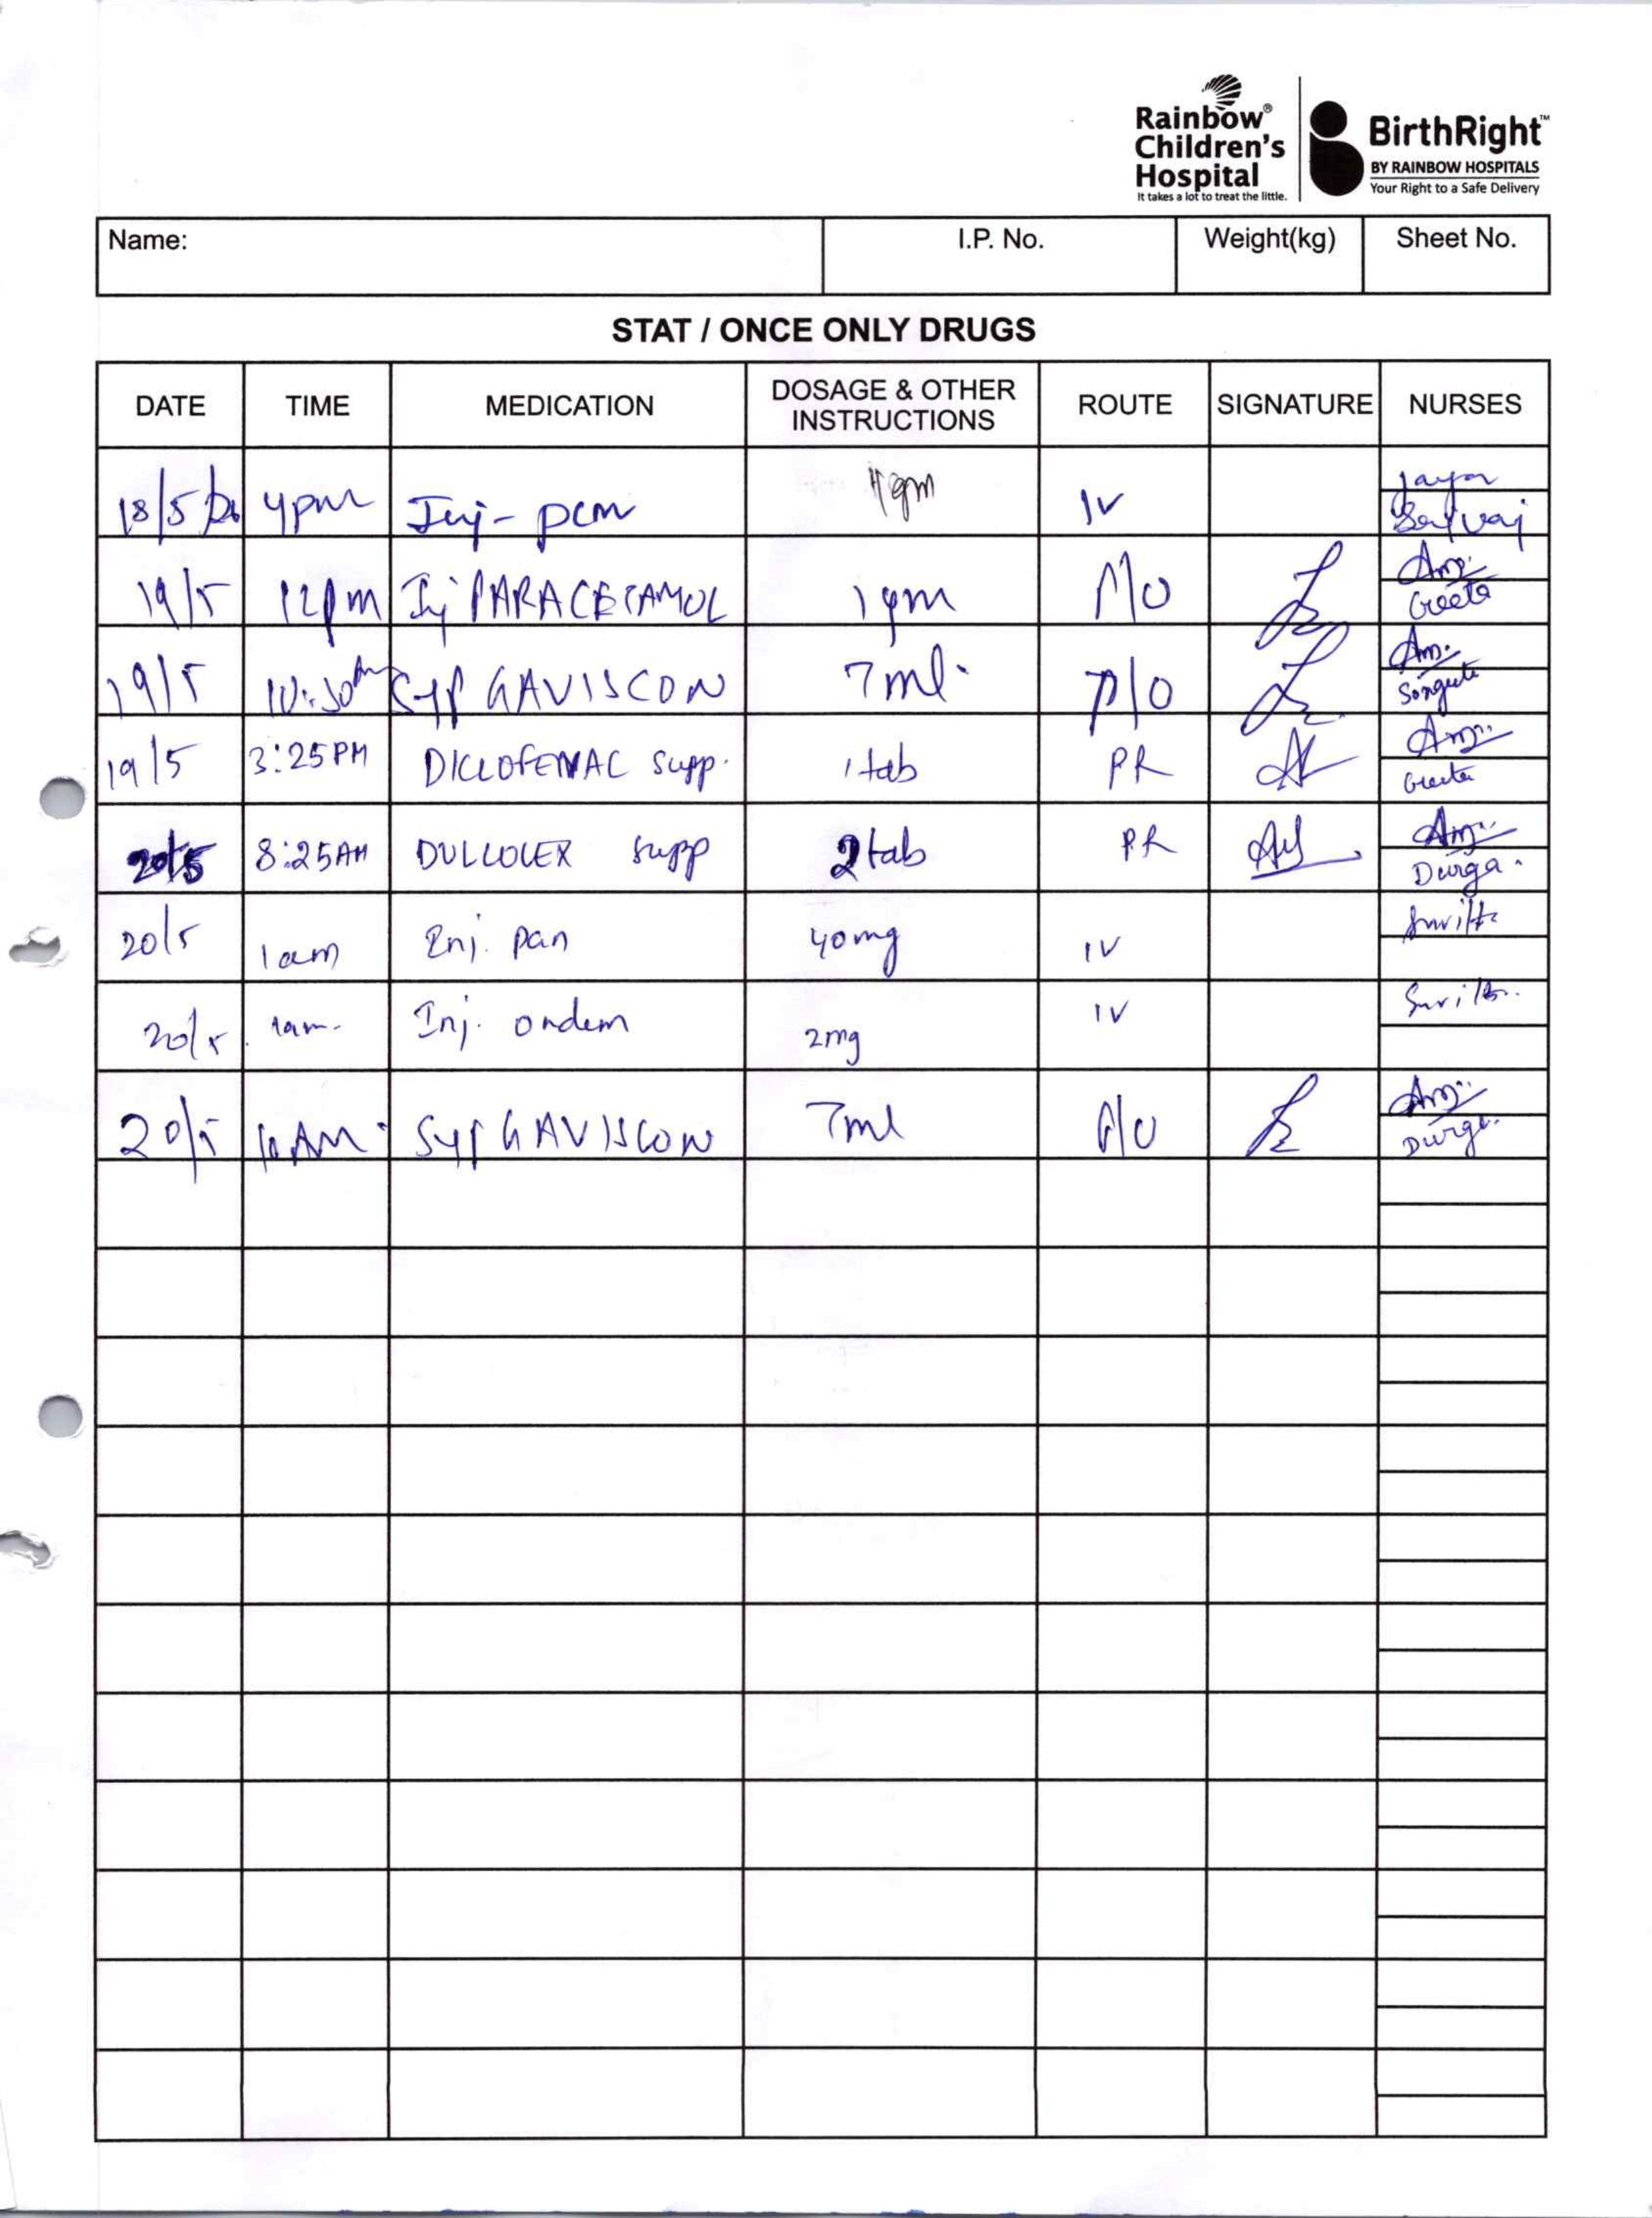 Rainbow®
Children's
Hospital
It takes a lot to treat the little.
BirthRight™
BY RAINBOW HOSPITALS
Your Right to a Safe Delivery
Name: I.P. No. Weight(kg) Sheet No.
STAT / ONCE ONLY DRUGS
DATE TIME MEDICATION DOSAGE & OTHER INSTRUCTIONS ROUTE SIGNATURE NURSES
18/5 4pm Inj- pcm 1gm IV
19/5 12pm Inj PARACETAMOL 1gm Geeta
19/5 10:30am Syp GAVISCON 7ml. P/O
19/5 3:25PM DICLOFENAC Supp. 1 tab PR Geeta
20/5 8:25AM DULCOLEX Supp 2 tab PR Durga.
20/5 1am Inj. pan 40mg IV
20/5 1am. Inj. ondem 2mg IV
20/5 10AM Syp GAVISCON 7ml P/O Durga.